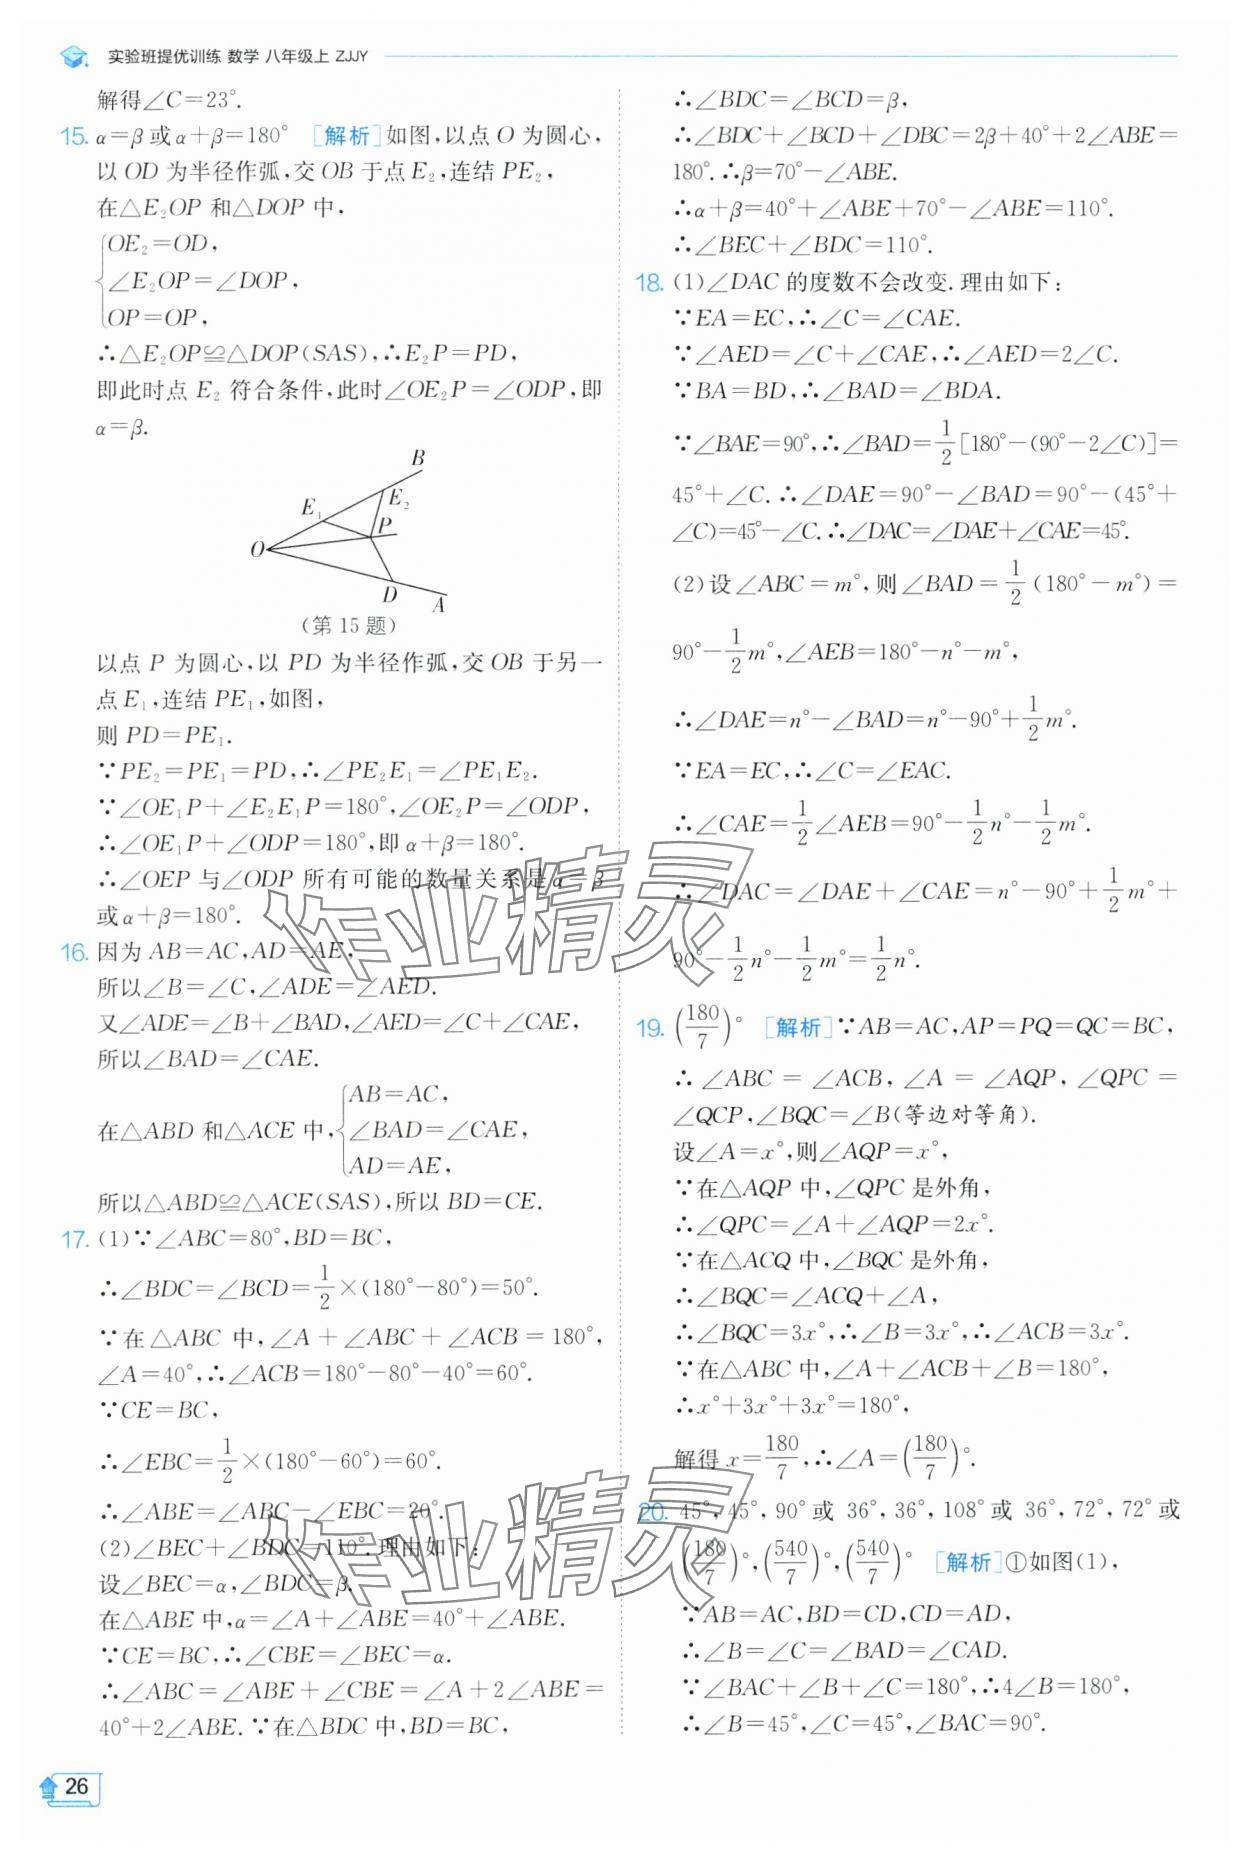 实验班提优训练 数学 八年级上 ZJJY
解得∠C=23°.
15. α=β或α+β=180° [解析]如图,以点O为圆心,
以OD为半径作弧,交OB于点E₂,连结PE₂,
在△E₂OP和△DOP中,
{OE₂=OD,
∠E₂OP=∠DOP,
OP=OP,
∴△E₂OP≌△DOP(SAS),∴E₂P=PD,
即此时点E₂符合条件,此时∠OE₂P=∠ODP,即
α=β.
B
E₁
E₂
P
O
D
A
(第15题)
以点P为圆心,以PD为半径作弧,交OB于另一
点E₁,连结PE₁,如图,
则PD=PE₁.
∵PE₂=PE₁=PD,∴∠PE₂E₁=∠PE₁E₂.
∵∠OE₁P+∠E₂E₁P=180°,∠OE₂P=∠ODP,
∴∠OE₁P+∠ODP=180°,即α+β=180°.
∴∠OEP与∠ODP所有可能的数量关系是α=β
或α+β=180°.
16. 因为AB=AC,AD=AE,
所以∠B=∠C,∠ADE=∠AED.
又∠ADE=∠B+∠BAD,∠AED=∠C+∠CAE,
所以∠BAD=∠CAE.
在△ABD和△ACE中,{AB=AC,
∠BAD=∠CAE,
AD=AE,
所以△ABD≌△ACE(SAS),所以BD=CE.
17. (1)∵∠ABC=80°,BD=BC,
∴∠BDC=∠BCD=1/2×(180°-80°)=50°.
∵在△ABC中,∠A+∠ABC+∠ACB=180°,
∠A=40°,∴∠ACB=180°-80°-40°=60°.
∵CE=BC,
∴∠EBC=1/2×(180°-60°)=60°.
∴∠ABE=∠ABC-∠EBC=20°.
(2)∠BEC+∠BDC=110°.理由如下:
设∠BEC=α,∠BDC=β.
在△ABE中,α=∠A+∠ABE=40°+∠ABE.
∵CE=BC,∴∠CBE=∠BEC=α.
∴∠ABC=∠ABE+∠CBE=∠A+2∠ABE=
40°+2∠ABE.∵在△BDC中,BD=BC,
∴∠BDC=∠BCD=β,
∴∠BDC+∠BCD+∠DBC=2β+40°+2∠ABE=
180°.∴β=70°-∠ABE.
∴α+β=40°+∠ABE+70°-∠ABE=110°.
∴∠BEC+∠BDC=110°.
18. (1)∠DAC的度数不会改变.理由如下:
∵EA=EC,∴∠C=∠CAE.
∵∠AED=∠C+∠CAE,∴∠AED=2∠C.
∵BA=BD,∴∠BAD=∠BDA.
∵∠BAE=90°,∴∠BAD=1/2[180°-(90°-2∠C)]=
45°+∠C.∴∠DAE=90°-∠BAD=90°-(45°+
∠C)=45°-∠C.∴∠DAC=∠DAE+∠CAE=45°.
(2)设∠ABC=m°,则∠BAD=1/2(180°-m°)=
90°-1/2m°,∠AEB=180°-n°-m°,
∴∠DAE=n°-∠BAD=n°-90°+1/2m°.
∵EA=EC,∴∠C=∠EAC.
∴∠CAE=1/2∠AEB=90°-1/2n°-1/2m°.
∴∠DAC=∠DAE+∠CAE=n°-90°+1/2m°+
90°-1/2n°-1/2m°=1/2n°.
19. (180/7)° [解析]∵AB=AC,AP=PQ=QC=BC,
∴∠ABC=∠ACB,∠A=∠AQP,∠QPC=
∠QCP,∠BQC=∠B(等边对等角).
设∠A=x°,则∠AQP=x°,
∵在△AQP中,∠QPC是外角,
∴∠QPC=∠A+∠AQP=2x°.
∵在△ACQ中,∠BQC是外角,
∴∠BQC=∠ACQ+∠A,
∴∠BQC=3x°,∴∠B=3x°,∴∠ACB=3x°.
∵在△ABC中,∠A+∠ACB+∠B=180°,
∴x°+3x°+3x°=180°,
解得x=180/7,∴∠A=(180/7)°.
20. 45°,45°,90°或36°,36°,108°或36°,72°,72°或
(180/7)°,(540/7)°,(540/7)° [解析]①如图(1),
∵AB=AC,BD=CD,CD=AD,
∴∠B=∠C=∠BAD=∠CAD.
∵∠BAC+∠B+∠C=180°,∴4∠B=180°,
∴∠B=45°,∠C=45°,∠BAC=90°.
26
作业精灵
作业精灵